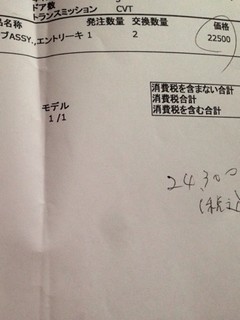 ドア数
トランスミッション CVT
品名称 発注数量 交換数量 価格
ブASSY.,エントリーキ 1 2 22500
消費税を含まない合計
モデル 消費税合計
1 /1 消費税を含む合計
24,300
(税込